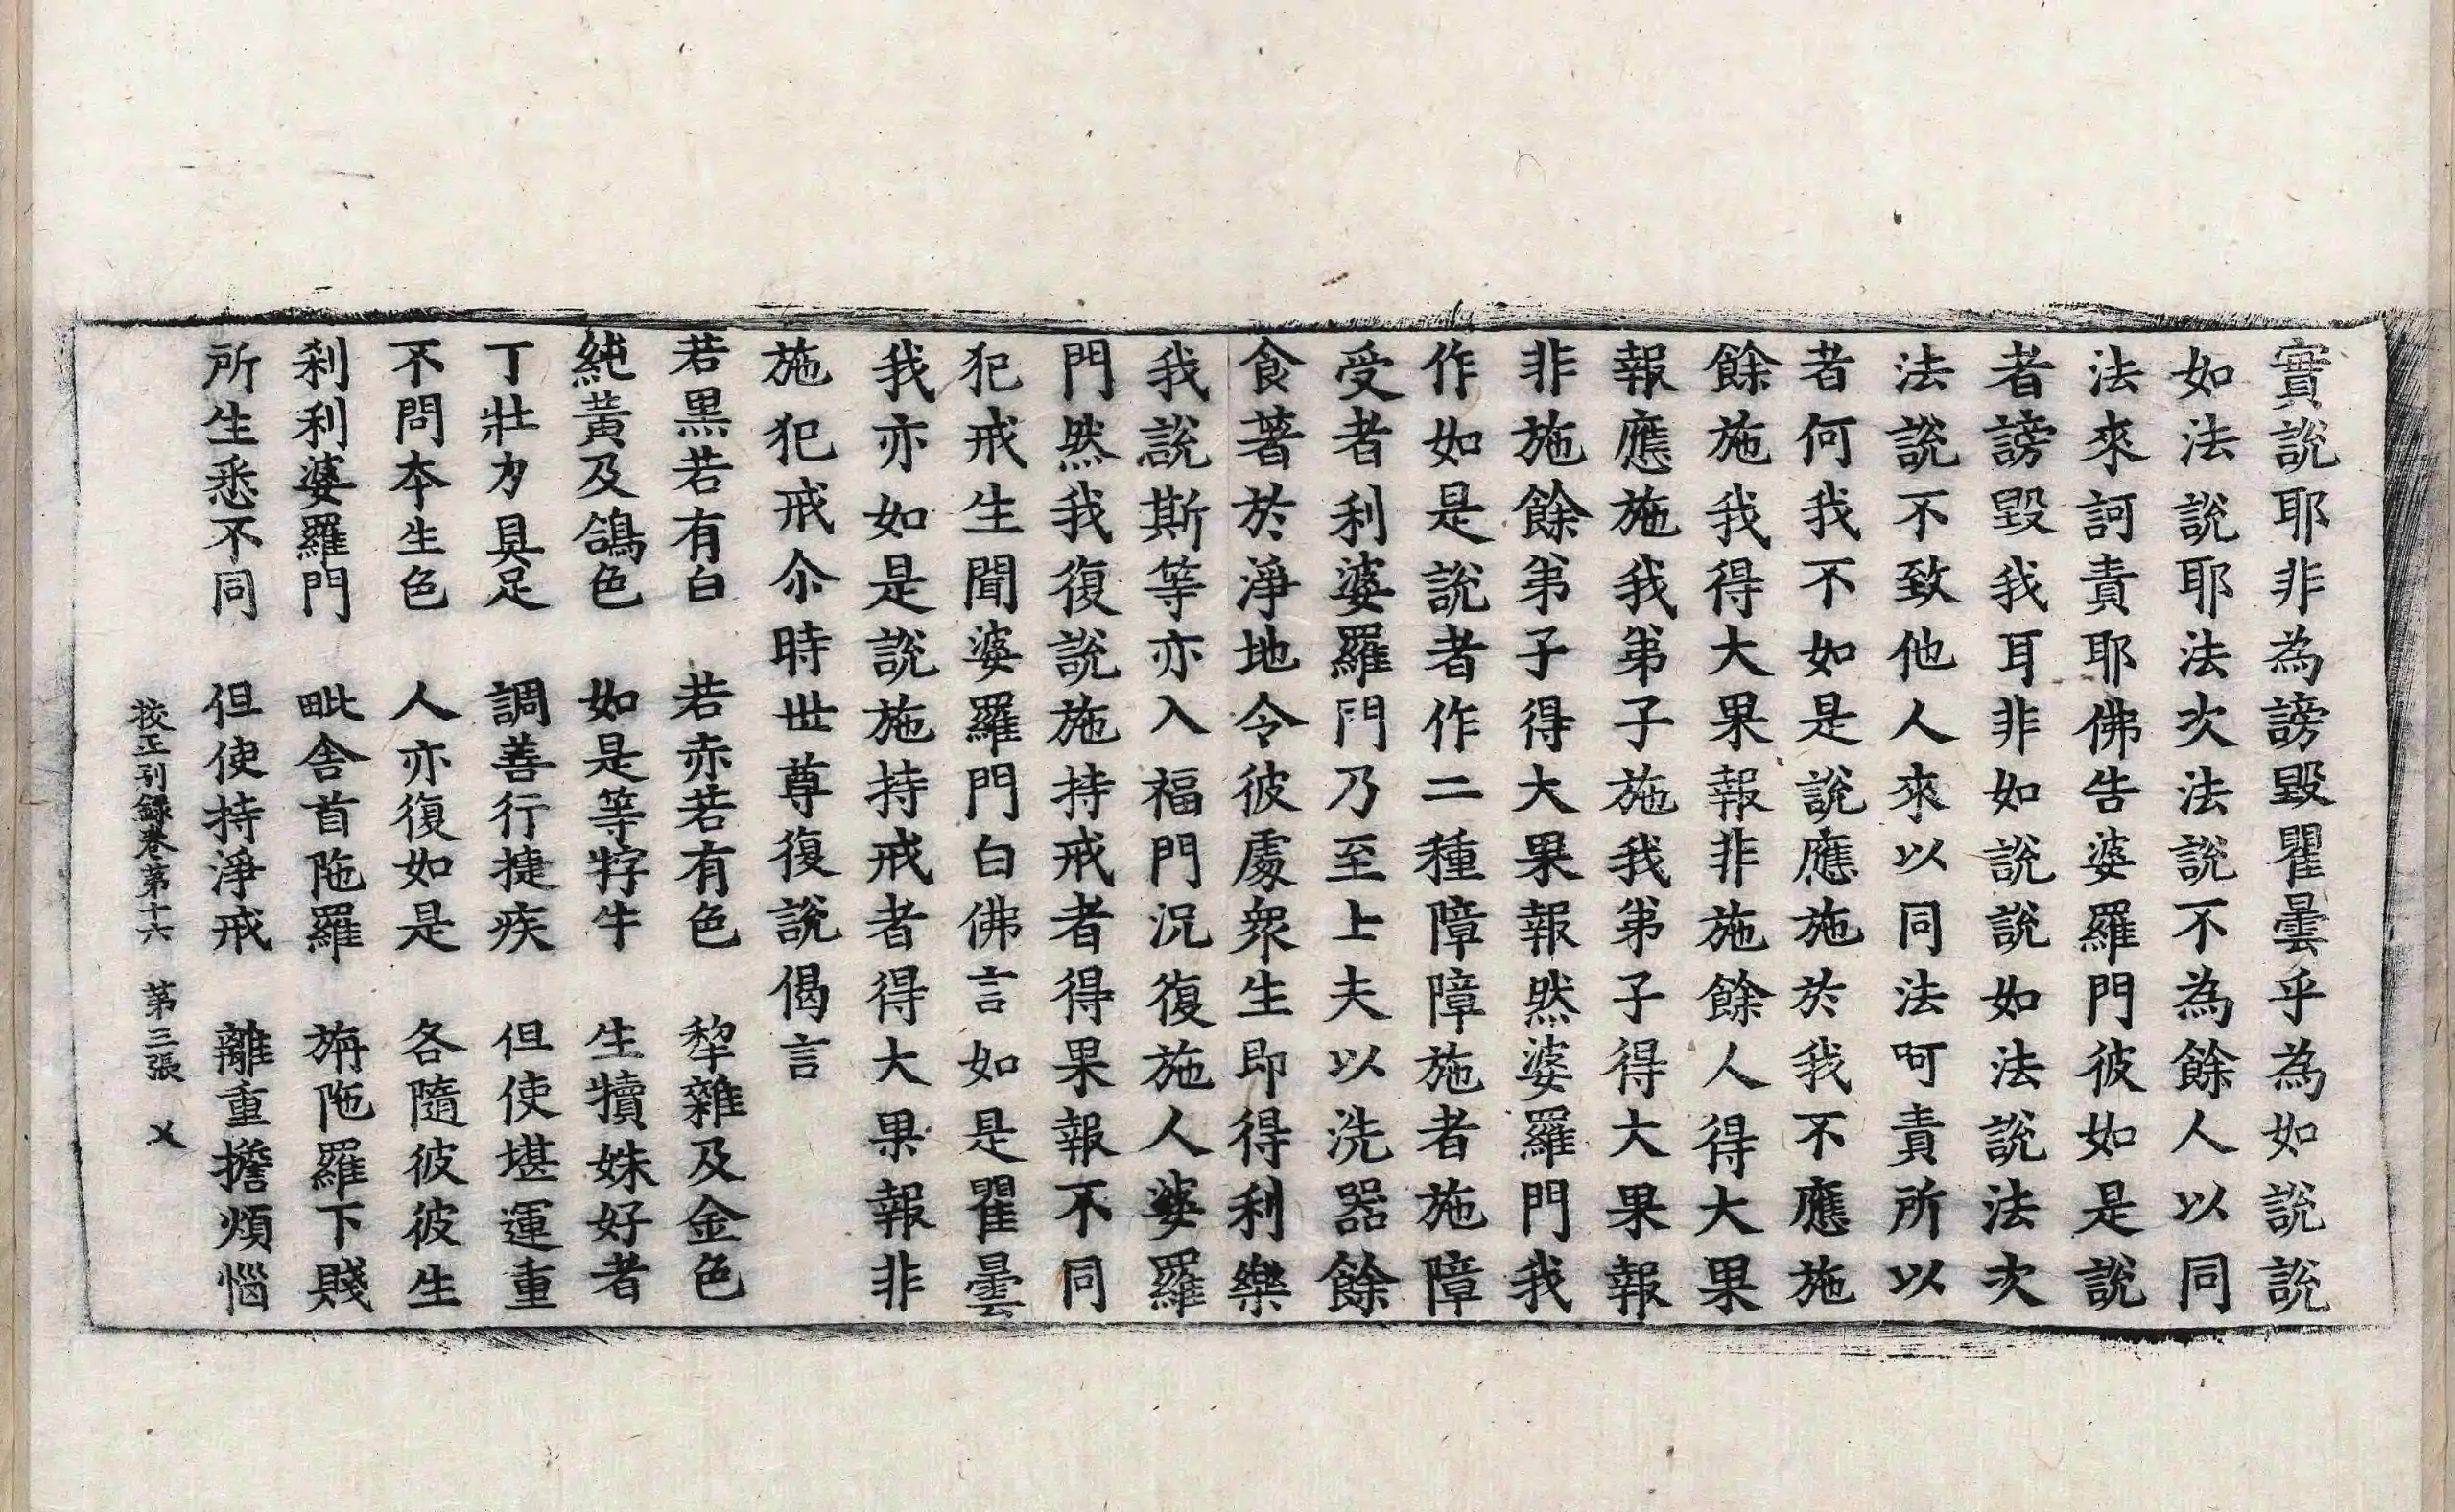 實說耶非為謗毀瞿曇乎為如說說
如法說耶法次法說不為餘人以同
法來訶責耶佛告婆羅門彼如是說
者謗毀我耳非如說說如法說法次
法說不致他人來以同法呵責所以
者何我不如是說應施於我不應施
餘施我得大果報非施餘人得大果
報應施我弟子施我弟子得大果報
非施餘弟子得大果報然婆羅門我
作如是說者作二種障障施者施障
受者利婆羅門乃至上夫以洗器餘
食著於淨地令彼處衆生即得利樂
我說斯等亦入福門況復施人婆羅
門然我復說施持戒者得果報不同
犯戒生聞婆羅門白佛言如是瞿曇
我亦如是說施持戒者得大果報非
施犯戒尒時世尊復說偈言
若黑若有白　若赤若有色　犂雜及金色
純黃及鴿色　如是等牸牛　生犢姝好者
丁壯力具足　調善行捷疾　但使堪運重
不問本生色　人亦復如是　各隨彼彼生
刹利婆羅門　毗舍首陁羅　旃陁羅下賤
所生悉不同　但使持淨戒　離重擔煩惱
挍正別錄卷第十六　第三張　乂